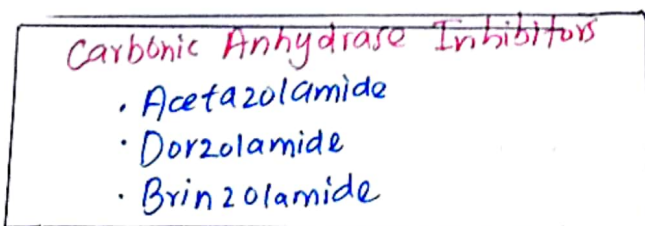 Carbonic Anhydrase Inhibitors
· Acetazolamide
· Dorzolamide
· Brinzolamide